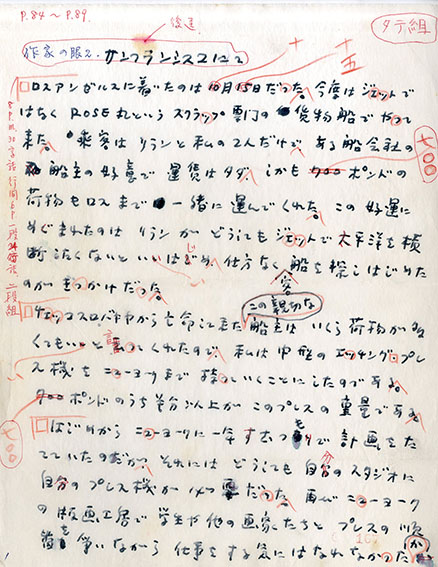 P.84〜P.89
後送
タテ組
作家の眼2. サンフランシスコにて
十
十五
ロスアンゼルスに着いたのは10月15日だった。今度はジェットで
はなくROSE丸というスクラップ専門の貨物船でやって
来た。乗客はリランと私の2人だけで、ある船会社の
船主の好意で運賃はタダ、しかも700ポンドの
七〇〇
荷物もロスまで一緒に運んでくれた。この好運に
めぐまれたのはリランがどうしてもジェットで太平洋を横
断したくないといいはじめ、仕方なく船を探しはじめた
のがきっかけだった。
この親切な
チェッコスロバキヤから亡命して来た船主はいくら荷物が多
くてもいいと言ってくれたので、私は中型のエッチング・プレ
ス機をニューヨークまで持っていくことにしたのである。
700ポンドのうち半分以上がこのプレスの重量である。
七〇〇
はじめからニューヨークに一年すむつもりで計画をた
てていたのだが、それにはどうしても自分のスタジオに
自分のプレス機が必要だった。再びニューヨーク
の版画工房で学生や他の画家たちとプレスの順
番を争いながら仕事をする気にはなれなかった